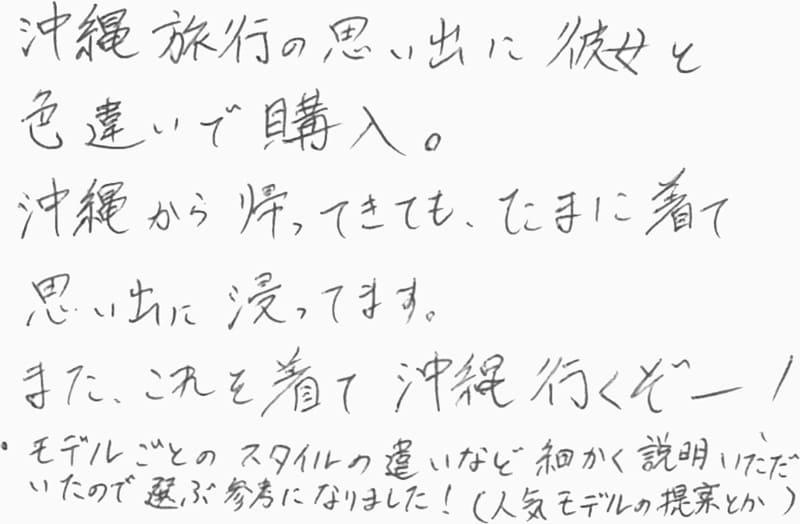 沖縄旅行の思い出に彼女と
色違いで購入。
沖縄から帰ってきても、たまに着て
思い出に浸ってます。
また、これを着て沖縄行くぞー！
・モデルごとのスタイルの違いなど細かく説明いただ
いたので選ぶ参考になりました！(人気モデルの提案とか)